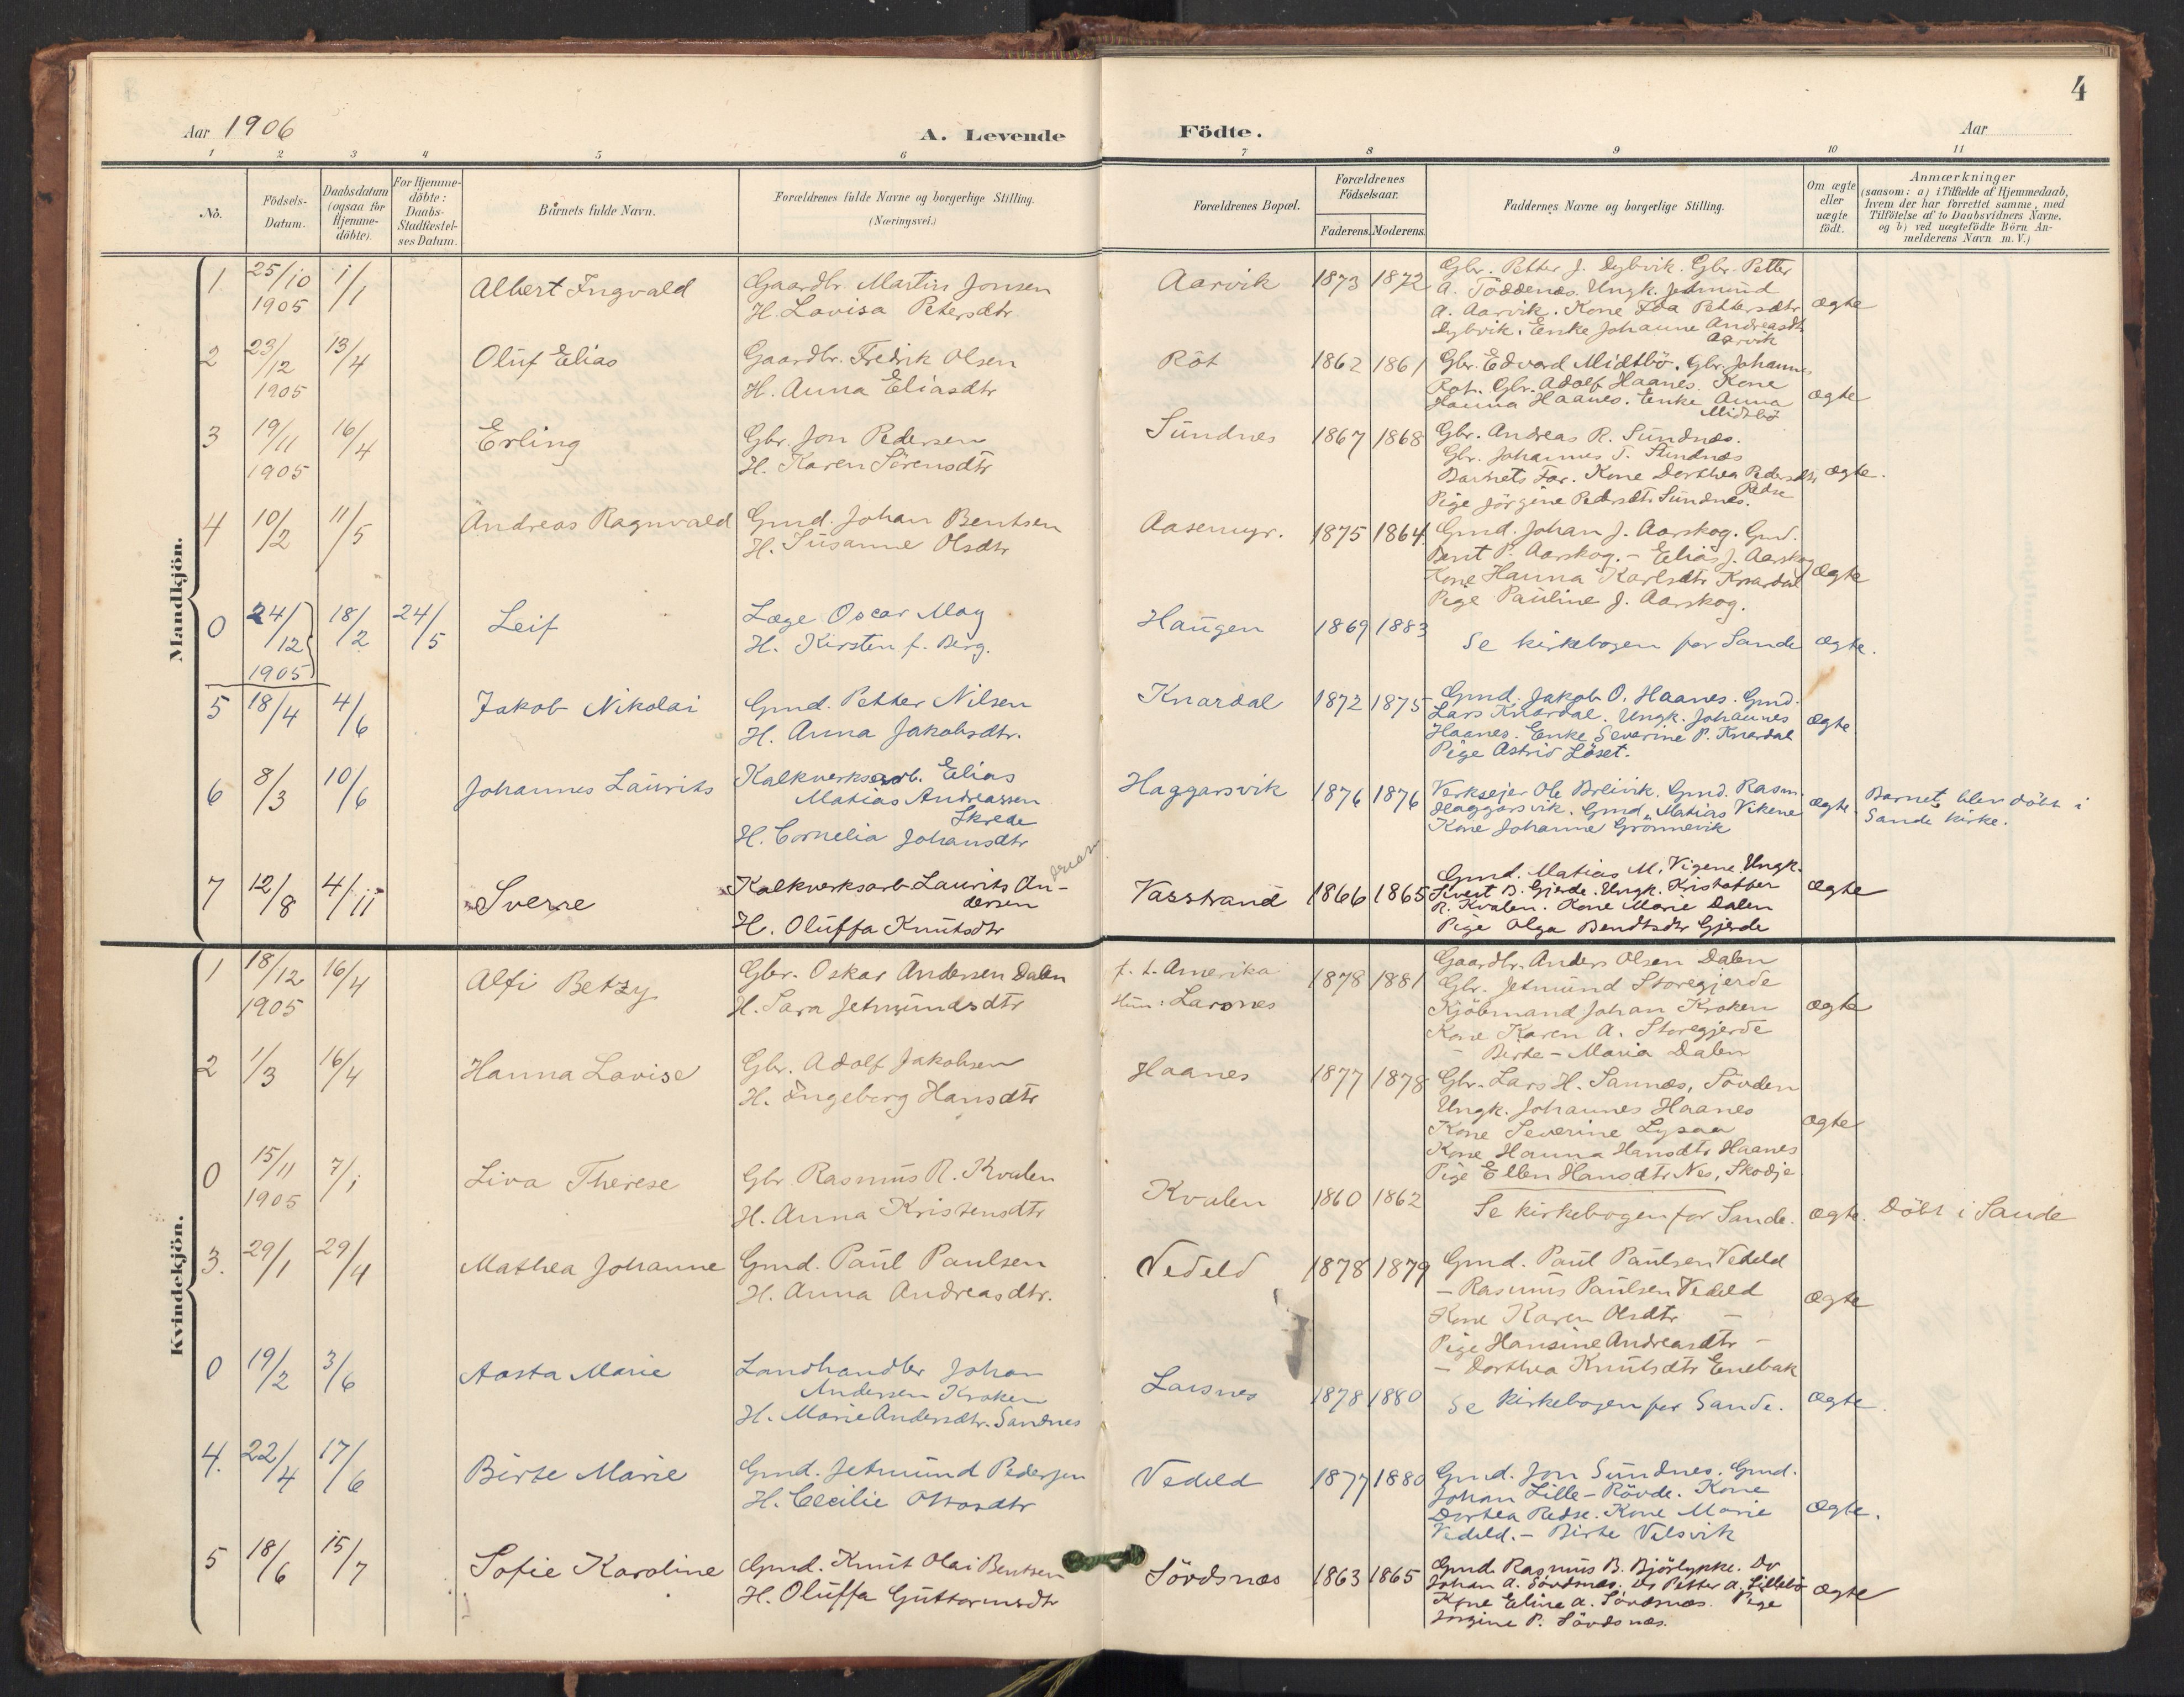 4
Aar 1906
A. Levende Födte.
Aar
1 2 3 4 5 6 7 8 9 10 11
No.
Födsels-
Datum.
Daabsdatum
(ogsaa for
Hjemme-
döbte).
For Hjemme-
döbte:
Daabs-
Stadfæstel-
ses Datum.
Barnets fulde Navn.
Forældrenes fulde Navne og borgerlige Stilling.
(Næringsvei.)
Forældrenes Bopæl.
Forældrenes
Födselsaar.
Faderens. Moderens.
Faddernes Navne og borgerlige Stilling.
Om ægte
eller
uægte
födt.
Anmærkninger
(saasom: a) i Tilfælde af Hjemmedaab,
hvem der har forrettet samme, med
Tilföielse af to Daabsvidners Navne.
og b) ved uægtefödte Börn An-
melderens Navn m. V.)
Mandkjön.
1
25/10
1905
1/1
Albert Ingvald
Gaardbr Martin Jonsen
H. Lovisa Petersdtr.
Aarvik
1873 1872
Gbr. Petter J. Dybvik. Gbr. Petter
A. Töddenes. Ungk. Jetmund
A. Aarvik. Kone Ida Pettersdtr
Dybvik. Enke Johanne Andreasdtr
Aarvik
ægte
2
23/12
1905
13/4
Oluf Elias
Gaardbr. Fredrik Olsen
H. Anna Eliasdtr
Röt
1862 1861
Gbr. Edvard Midtbö. Gbr. Johannes
Röt. Gbr. Adolf Haanes. Kone
Hanna Haanes. Enke Anna
Midtbö
ægte
3
19/11
1905
16/4
Erling
Gbr. Jon Pedersen
H. Karen Sörensdtr
Sundnes
1867 1868
Gbr. Andreas R. Sundnæs.
Gbr. Johannes T. Sundnæs
Barnets Far. Kone Dorthea Pedersdtr
Redse
Pige Jörgine Pedersdt. Sundnes.
ægte.
4
10/2
11/5
Andreas Ragnvald
Gmd. Johan Bentsen
H. Susanne Olsdtr
Aasemyr.
1875 1864
Gmd. Johan J. Aarskog. Gmd.
Bent P. Aarskog. – Elias J. Aarskog
Kone Hanna Karlsdtr Knardal
Pige Pauline J. Aarskog.
ægte
0
24/12
1905
18/2
24/5
Leif
Læge Oscar May
H. Kirsten f. Berg.
Haugen
1869 1883
Se kirkebogen for Sande
ægte.
5
18/4
4/6
Jakob Nikolai
Gmd. Petter Nilsen
H. Anna Jakobsdtr.
Knardal
1872 1875
Gmd. Jakob O. Haanes. Gmd.
Lars Knardal. Ungk. Johannes
Haanes. Enke Severine P. Knardal
Pige Astrid Löset.
ægte
6
8/3
10/6
Johannes Laurits
Kalkverksarb. Elias
Matias Andreassen
Skrede
H. Cornelia Johansdtr
Haggarsvik
1876 1876
Verksejer Ole Breivik. Gmd. Rasm.
Haggarsvik. Gmd. Matias Vikene
Kone Johanne Grönnevik
ægte.
Barnet blev döbt i
Sande kirke.
7
12/8
4/11
Sverre
Kalkverksarb. Laurits An-
dersen
H. Oluffa Knutsdtr
Vasstrand
1866 1865
Gmd. Matias M. Vigene. Ungk.
Sivert B. Gjerde. Ungk. Kristoffer
R. Kvalen. Kone Marie Dalen
Pige Olga Bendtsdtr Gjerde
ægte
Kvindekjön.
1
18/12
1905
16/4
Alfi Betzy
Gbr. Oskar Andersen Dalen
H. Sara Jetmundsdtr
f. t. Amerika
Hun: Larsnes
1878 1881
Gaardbr. Anders Olsen Dalen
Gbr. Jetmund Storegjerde
Kjöbmand Johan Kroken
Kone Karen A. Storegjerde
– Birte-Maria Dalen
ægte
2
1/3
16/4
Hanna Lovise
Gbr. Adolf Jakobsen
H. Ingeborg Hansdtr
Haanes
1877 1878
Gbr. Lars H. Sannæs, Sövden
Ungk. Johannes Haanes
Kone Severine Lysaa
Kone Hanna Hansdtr Haanes
Pige Ellen Hansdtr Nes, Skodje
ægte
0
15/11
1905
7/1
Liva Therese
Gbr. Rasmus R. Kvalen
H. Anna Kristensdtr
Kvalen
1860 1862
Se kirkebogen for Sande.
ægte.
Döbt i Sande
3.
29/1
29/4
Mathea Johanne
Gmd. Paul Paulsen
H. Anna Andreasdtr.
Vedeld
1878 1879
Gmd. Paul Paulsen Vedeld
– Rasmus Paulsen Vedeld
Kone Karen Olsdtr –
Pige Hansine Andreasdtr –
– Dorthea Knutsdtr Enebak
ægte
0
19/2
3/6
Aasta Marie
Landhandler Johan
Andersen Kroken
H. Marie Andersdtr. Sandnes
Larsnes
1878 1880
Se kirkebogen for Sande.
ægte.
4.
22/4
17/6
Birte Marie
Gmd. Jetmund Pedersen
H. Cecilie Ottosdtr
Vedeld
1877 1880
Gmd. Jon Sundnes. Gmd.
Johan Lille-Rövde. Kone
Dorthea Redse. Kone Marie
Vedeld. – Birte Velsvik
ægte.
5
18/6
15/7
Sofie Karoline
Gmd. Knut Olai Bentsen
H. Oluffa Guttormsdtr
Sövdsnæs
1863 1865
Gmd. Rasmus B. Björlykke. Do
Johan A. Sövdsnæs. Do Petter A. Lillebö
Kone Eline A. Sövdsnæs. Pige
Jörgine P. Sövdsnæs.
ægte